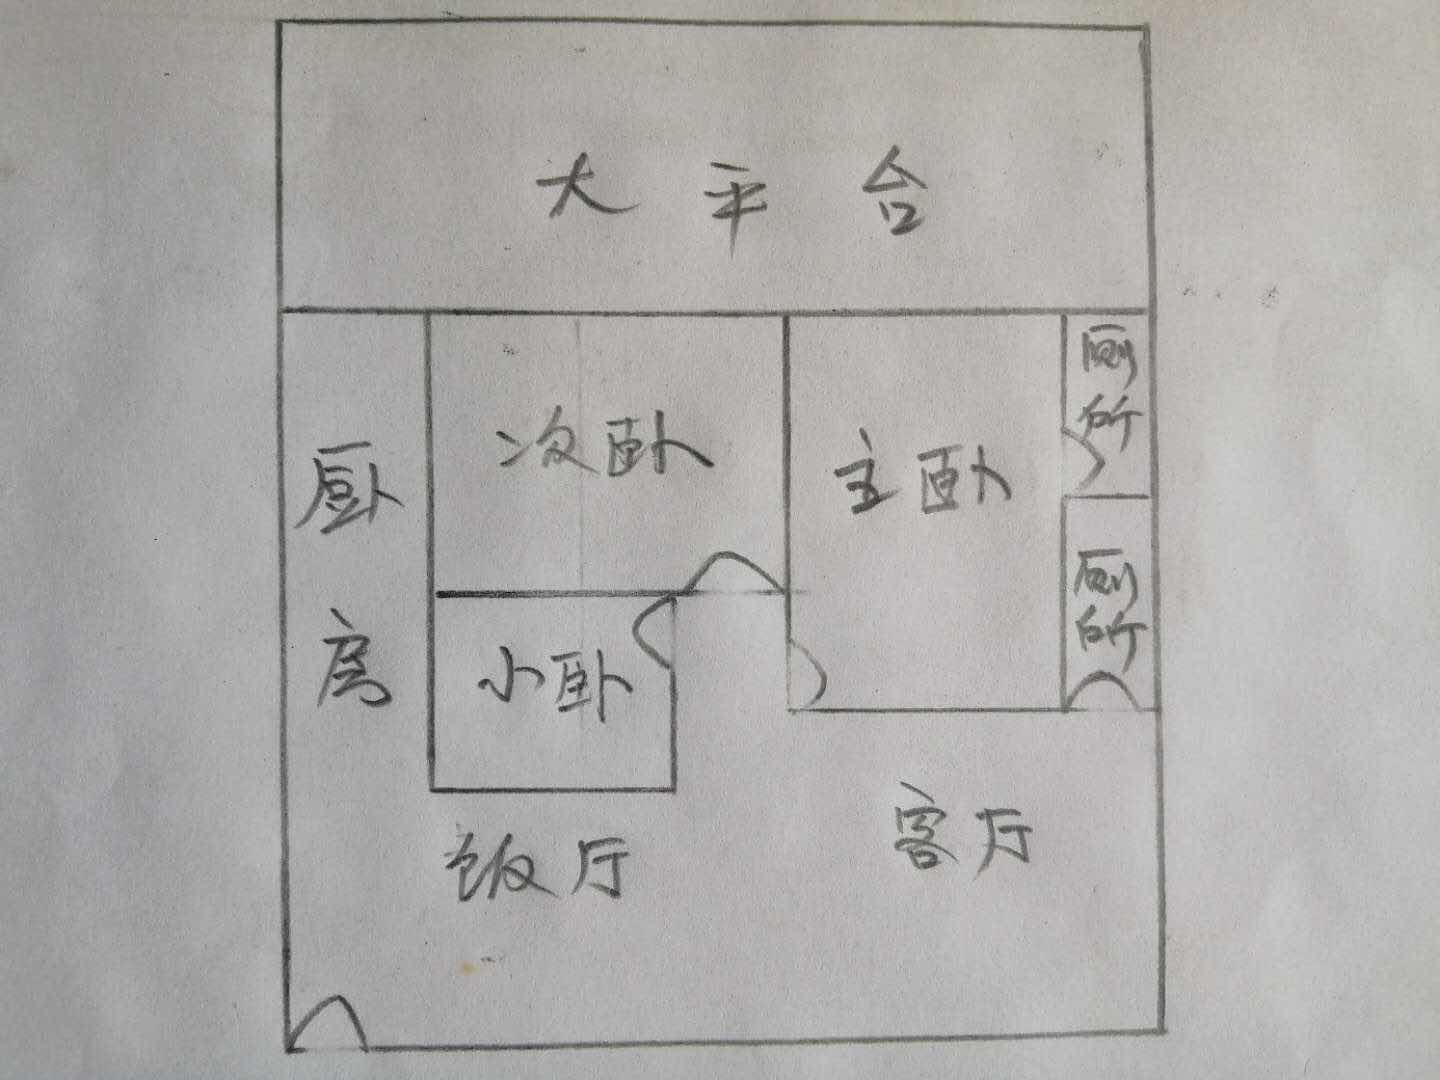 大平台
厨房
次卧
主卧
厕所
厕所
小卧
饭厅
客厅